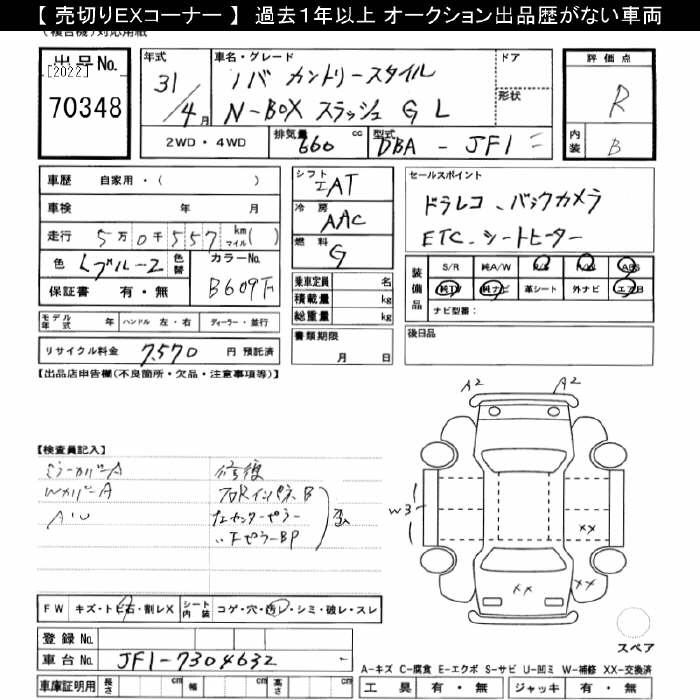 【 売切りEXコーナー 】 過去1年以上 オークション出品歴がない車両
出品No.
[2022]
70348
年式
31/4月
車名・グレード
ノバ カントリースタイル
N-BOX スラッシュ G L
ドア
形状
2WD・4WD
排気量 660 cc
型式 DBA - JF1
評価点
R
内装
B
車歴 自家用・( )
車検 年 月
走行 5万0千557 km マイル( )
色 Lブルー2 色替
カラーNo. B609M
保証書 有・無
シフト IAT
冷房 AAC
燃料 G
乗車定員 名
積載量 kg
総重量 kg
書類期限
月 日
セールスポイント
ドラレコ、バックカメラ
ETC、シートヒーター
装備品
S/R 純A/W P/S P/W ABS
純TV 純ナビ 革シート 外ナビ エアB
ナビ型番:
後日品
モデル年式 年 ハンドル 左・右 ディーラー・並行
リサイクル料金 7,570 円 預託済
【出品店申告欄(不良箇所・欠品・注意事項等)】
A2 A2
【検査員記入】
ミラーカバーA
Wカバー A
修復
右Rインパネ B
左センターピラー
〃FピラーBP
W3
XX
XX XX
FW キズ・トビ石・割レX
シート内装 コゲ・穴・汚レ・シミ・破レ・スレ
登録No.
車台No. JF1-7304632
車庫証明用 長さ cm 幅 cm 高さ cm
スペア
A-キズ C-腐食 E-エクボ S-サビ U-凹ミ W-補修 XX-交換済
工具 有・無 ジャッキ 有・無